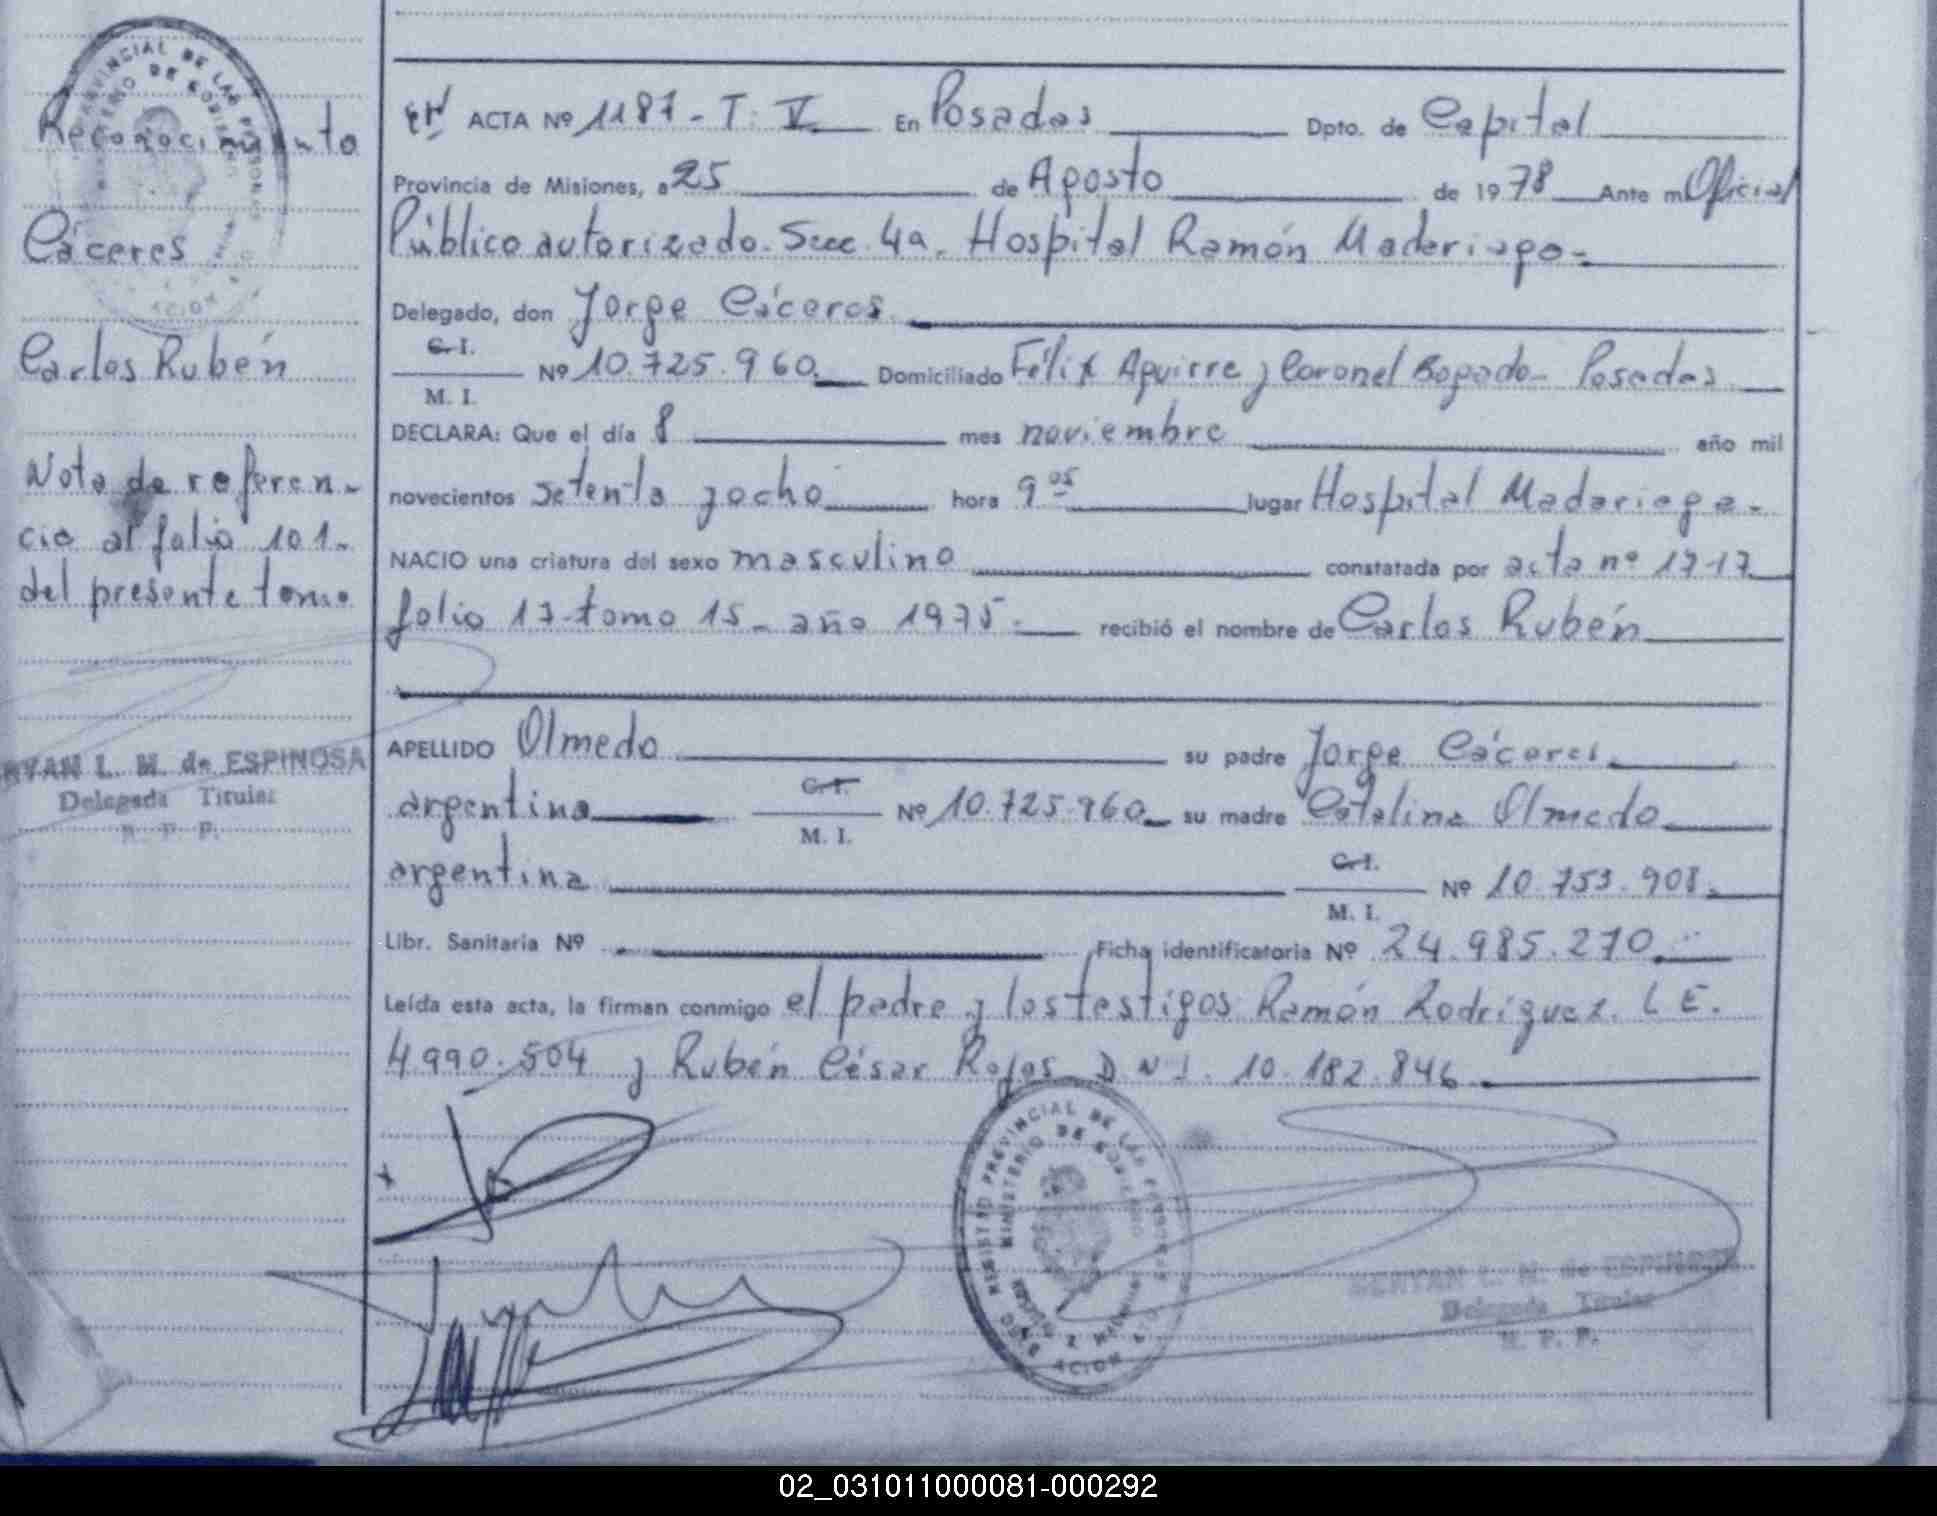 Reconocimiento
Cáceres
Carlos Rubén
Nota de referen-
cia al folio 101-
del presente tomo
L. M. de ESPINOSA
Delegada Titular
R. P. P.
ACTA Nº 1187 - T: V. En Posadas Dpto. de Capital
Provincia de Misiones, a 25 de Agosto de 1978 Ante mí Oficial
Público autorizado. Secc. 4a. Hospital Ramón Madariaga-
Delegado, don Jorge Cáceres
C. I.
Nº 10.725.960 Domiciliado Félix Aguirre y Coronel Bogado- Posadas
M. I.
DECLARA: Que el día 8 mes noviembre año mil
novecientos setenta y ocho hora 9 05 lugar Hospital Madariaga-
NACIO una criatura del sexo masculino constatada por acta nº 1717
folio 17-tomo 15- año 1975- recibió el nombre de Carlos Rubén
APELLIDO Olmedo su padre Jorge Cáceres
C. I.
argentino Nº 10.725.960 su madre Catalina Olmedo
M. I.
C. I.
argentina Nº 10.753.908.
M. I.
Libr. Sanitaria Nº Ficha identificatoria Nº 24.985.270
Leída esta acta, la firman conmigo el padre y los testigos Ramón Rodríguez. L E.
4.990.504 y Rubén César Rojas D N I. 10.182.846
REGISTRO PROVINCIAL DE LAS PERSONAS
MINISTERIO DE GOBIERNO
L. M. de ESPINOSA
Delegada Titular
R. P. P.
02_031011000081-000292